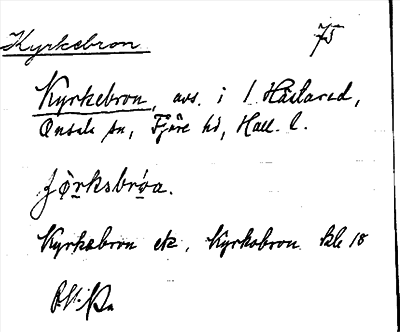 Kyrkebron 75
Kyrkebron, avs. i 1 Hästared,
Onsala sn, Fjäre hd, Hall. l.
ʃø̱rksbrǫa.
Kyrkebron ek, Kyrkobron kbl 18